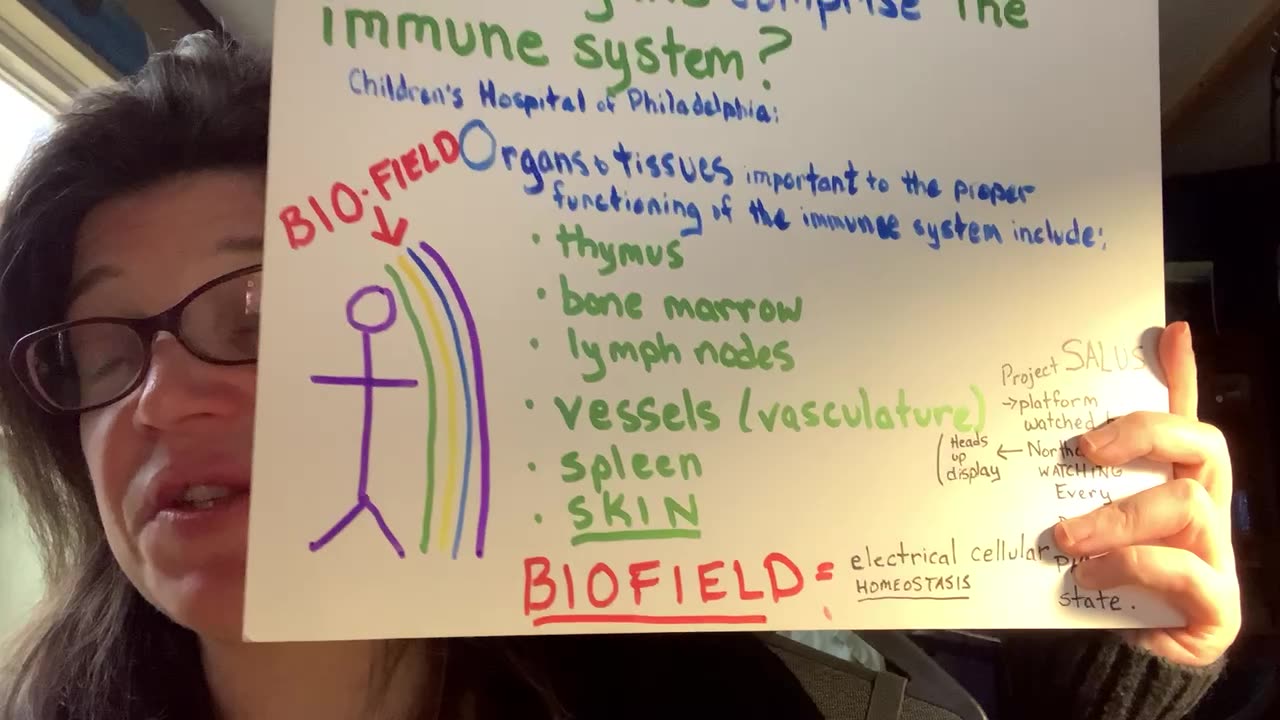 comprise The
immune system?
Children's Hospital of Philadelphia:
BIO-FIELD
Organs & tissues important to the proper
functioning of the immunee system include:
• thymus
• bone marrow
• lymph nodes
• vessels (vasculature)
• spleen
• SKIN
Project SALUS
→platform
watched
(Heads
up
display
←
WATCHING
Every
state.
BIOFIELD =
electrical cellular
HOMEOSTASIS